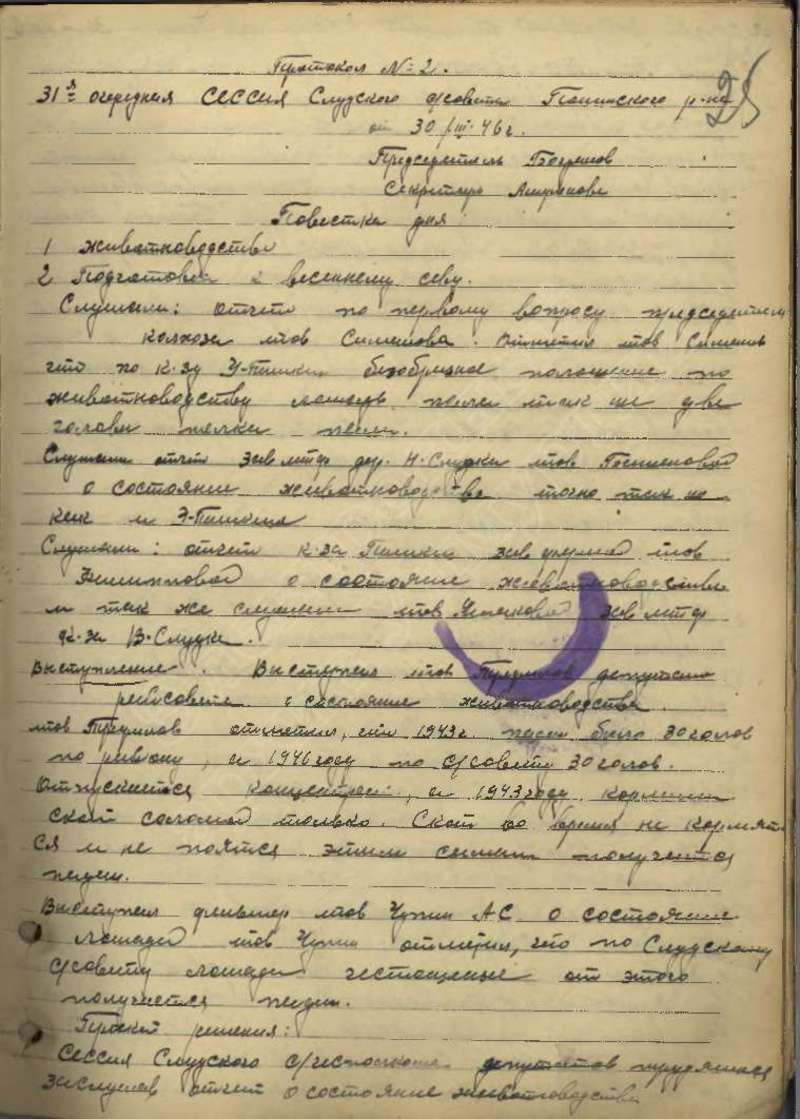 Протокол № 2.
25
31я очередная СЕССИЯ Слудского с/совета р-на
от 30/III-46 г.
Председатель
Секретарь
Повестка дня
1 животноводство
2 Подготовка к весеннему севу.
Слушали: отчет по первому вопросу председателя
колхоза тов Отметил тов
что по к-зу безобразное положение по
животноводству лошадь пала так же две
головы телки пали.
Слушали отчет зав мтф дер. Н-Слудки тов
о состояние животноводства точно так же
как и
Слушали: отчет к-за зав фермой тов
о состояние животноводства
и так же слушали тов зав мтф
к-за В-Слудка.
Выступление. Выступил тов депутат
райсовета о состояние животноводства.
тов отметил, что 1943 г. падеж было 30 голов
по району, а 1946 году по с/совету 30 голов.
Отпускается концентрат, а 1943 году кормили
скот соломой только. Скот во время не кормят
ся и не поятся этим самым получается
падеж.
Выступил тов Чупин АС о состояние
лошадей тов Чупин отметил, что по Слудскому
с/совету лошади истощенные от этого
получается падеж.
Проект решения:
Сессия Слудского с/ депутатов трудящихся
заслушав отчет о состояние животноводства